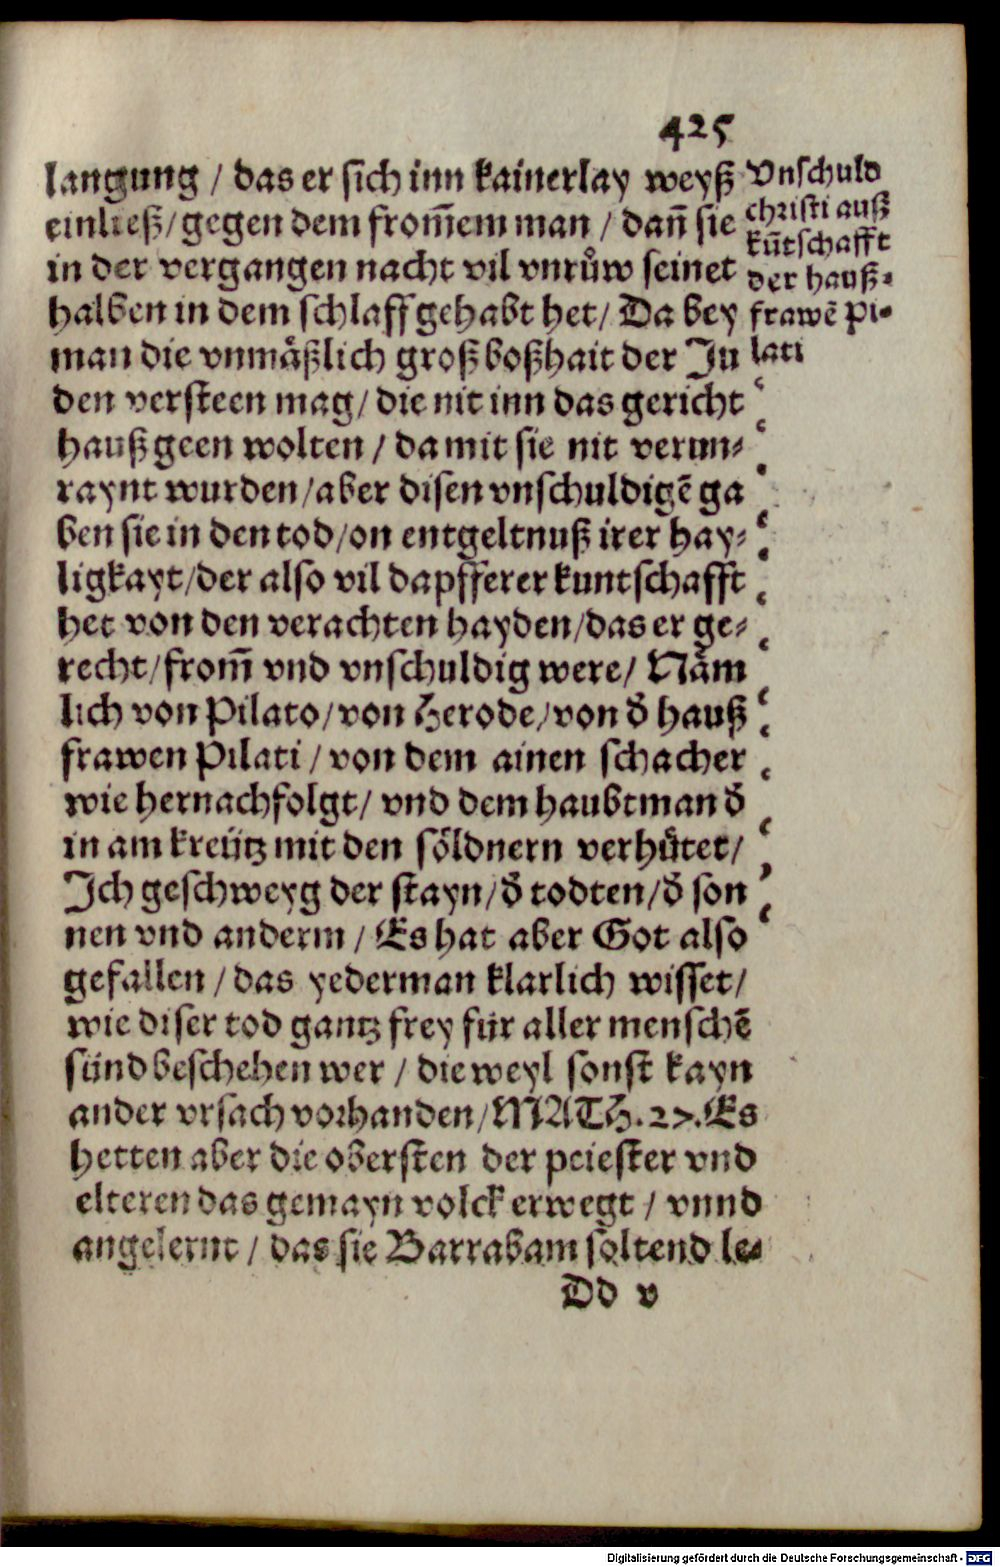 425
langung / das er sich inn kainerlay weyß
einließ / gegen dem from̃em man / dañ sie
in der vergangen nacht vil vnrůw seinet
halben in dem schlaff gehabt het / Da bey
man die vnmäßlich groß boßhait der Ju
den versteen mag / die nit inn das gericht
hauß geen wolten / da mit sie nit verun⸗
raynt wurden / aber disen vnschuldigẽ ga
ben sie in den tod / on entgeltnuß irer hay⸗
ligkayt / der also vil dapfferer kuntschafft
het von den verachten hayden / das er ge⸗
recht / from̃ vnd vnschuldig were / Näm
lich von Pilato / von Herode / von d̓ hauß
frawen Pilati / von dem ainen schacher
wie hernachfolgt / vnd dem haubtman d̓
in am kreütz mit den söldnern verhütet /
Ich geschweyg der stayn / d̓ todten / d̓ son
nen vnd anderm / Es hat aber Got also
gefallen / das yederman klarlich wisset /
wie diser tod gantz frey für aller menschẽ
sünd beschehen wer / die weyl sonst kayn
ander vrsach vorhanden / MATH. 27. Es
hetten aber die obersten der peiester vnd
elteren das gemayn volck erwegt / vnnd
angelernt / das sie Barrabam soltend le⸗
Dd v
Vnschuld
christi auß
kũtschafft
der hauß⸗
frawẽ Pi⸗
lati
Digitalisierung gefördert durch die Deutsche Forschungsgemeinschaft - DFG